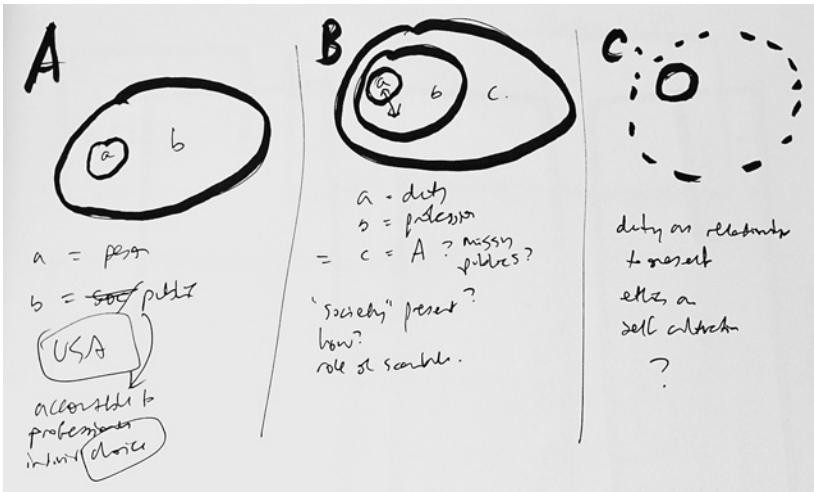 A
a
b
a = person
b = soc/ public
USA
accountable to
professions
individ choice
B
a
b
c.
a = duty
b = profession
= c = A ? missing
publics?
"society" present?
how?
role of
C.
duty as relationship
to oneself
ethics as
self cultivation
?